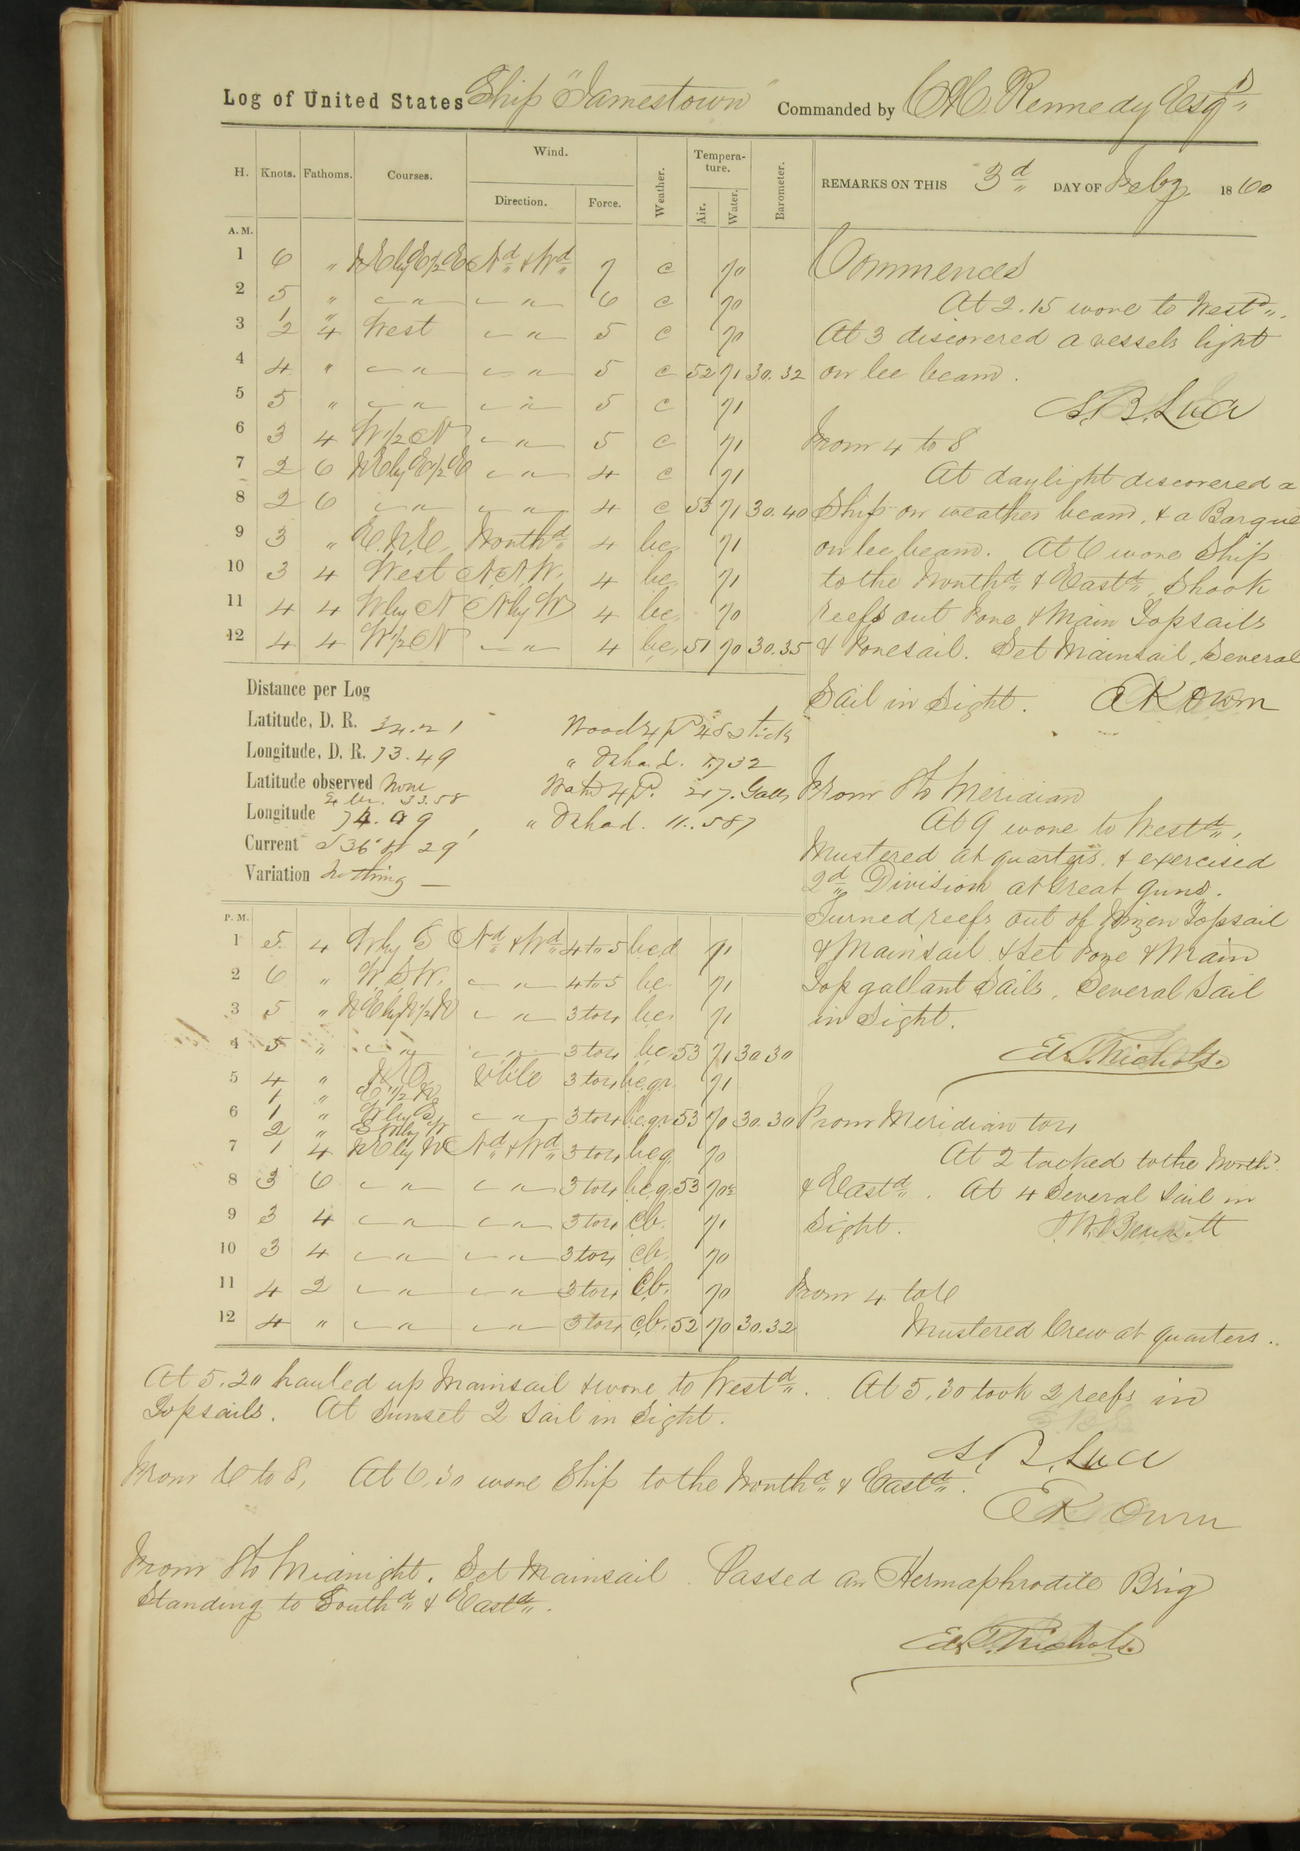 Log of United States Ship "Jamestown" Commanded by C H Kennedy Esqr
H. Knots. Fathoms. Courses. Wind. Direction. Force. Weather. Temperature. Air. Water. Barometer. REMARKS ON THIS 3d DAY OF Feby 1860
A. M.
1 6 " NE by E 1/2 E Nd & Wd 7 c 70
2 5 " " " 6 c 70
1 "
3 2 4 West " 5 c 70
4 4 " " " 5 c 52 71 30.32
5 5 " " " 5 c 71
6 3 4 W 1/2 N " 5 c 71
7 2 6 NE by E 1/2 E " 4 c 71
8 2 6 " " 4 c 53 71 30.40
9 3 " E.N.E. Northd 4 bc 71
10 3 4 West N.N.W. 4 bc 71
11 4 4 W by N N by W 4 bc 70
12 4 4 W 1/2 N " 4 bc 51 70 30.35
Commences
At 2.15 wore to Westd.
At 3 discovered a vessels light
on lee beam.
S. B. Luce
From 4 to 8
At daylight discovered a
Ship on weather beam, & a Barque
on lee beam. At 6 wore Ship
to the Northd & Eastd. Shook
reefs out Fore & Main Topsails
& Foresail. Set Mainsail, Several
Sail in Sight. E K Owen
Distance per Log
Latitude, D. R. 34.21
Longitude, D. R. 73.49
Latitude observed None
Longitude 74.09
Current S 36° W 29
Variation Nothing
Wood 4 P. 480 sticks
" Do hand.
Water 4 P. 217 Galls
" Do hand. 11.587
From 8 to Meridian
At 9 wore to Westd,
Mustered at quarters & exercised
2d Division at Great guns.
Turned reefs out of Mizen Topsail
& Mainsail & set Fore & Main
Top gallant Sails. Several Sail
in Sight.
Ed. T. Nichols.
P. M.
1 5 4 W by S Nd & Wd 4 to 5 bcd 71
2 6 " W.S.W. " 4 to 5 bc 71
3 5 " NE by N 1/2 N " 3 to 4 bc 71
4 5 " " " 3 to 4 bc 53 71 30.30
5 4 " N.E. Vble 3 to 4 bcgr 71
1 " E 1/2 N
6 1 " W by S " 3 to 4 bcgr 53 70 30.30
2 "
7 1 4 NE by N Nd & Wd 3 to 4 bcg 70
8 3 6 " " 3 to 4 bcg 53 70
9 3 4 " " 3 to 4 cb. 71
10 3 4 " " 3 to 4 cb. 70
11 4 2 " " 3 to 4 cb. 70
12 4 " " " 3 to 4 cb. 52 70 30.32
From Meridian to 4
At 2 tacked to the Northd
& Eastd. At 4 Several Sail in
Sight. J. W. Bennett
From 4 to 6
Mustered Crew at quarters.
At 5.20 hauled up Mainsail & wore to Westd. At 5.30 took 2 reefs in
Topsails. At Sunset 2 Sail in Sight.
S. B. Luce
From 6 to 8, At 6.30 wore Ship to the Northd & Eastd.
E K Owen
From 8 to Midnight. Set Mainsail. Passed an Hermaphrodite Brig
Standing to Southd & Eastd.
Ed. T. Nichols.